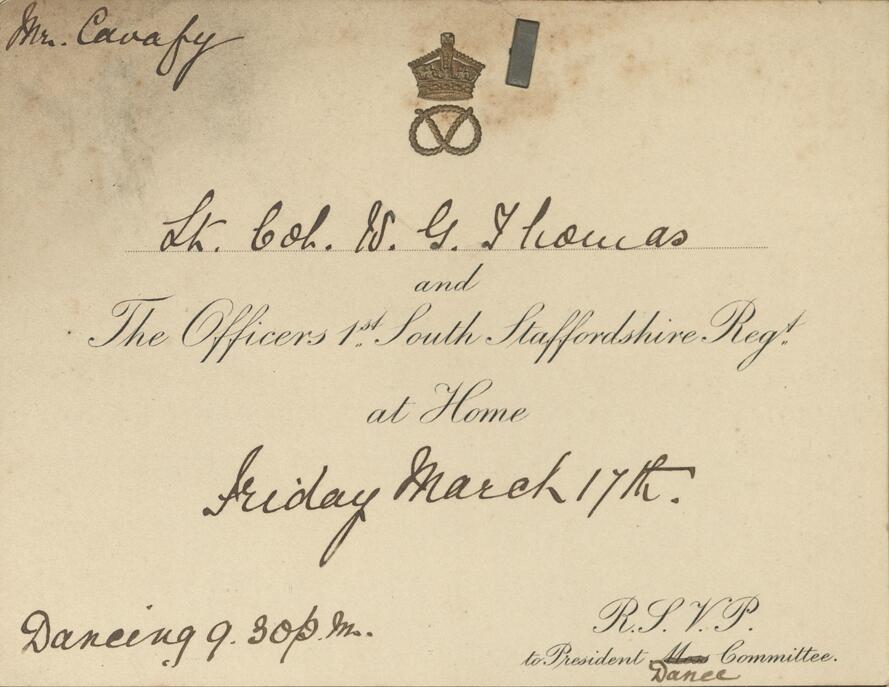 Mr. Cavafy
Lt. Col. W. G. Thomas
and
The Officers 1st South Staffordshire Regt.
at Home
Friday March 17th.
Dancing 9.30 p.m.
R.S.V.P.
to President Mess Committee.
Dance